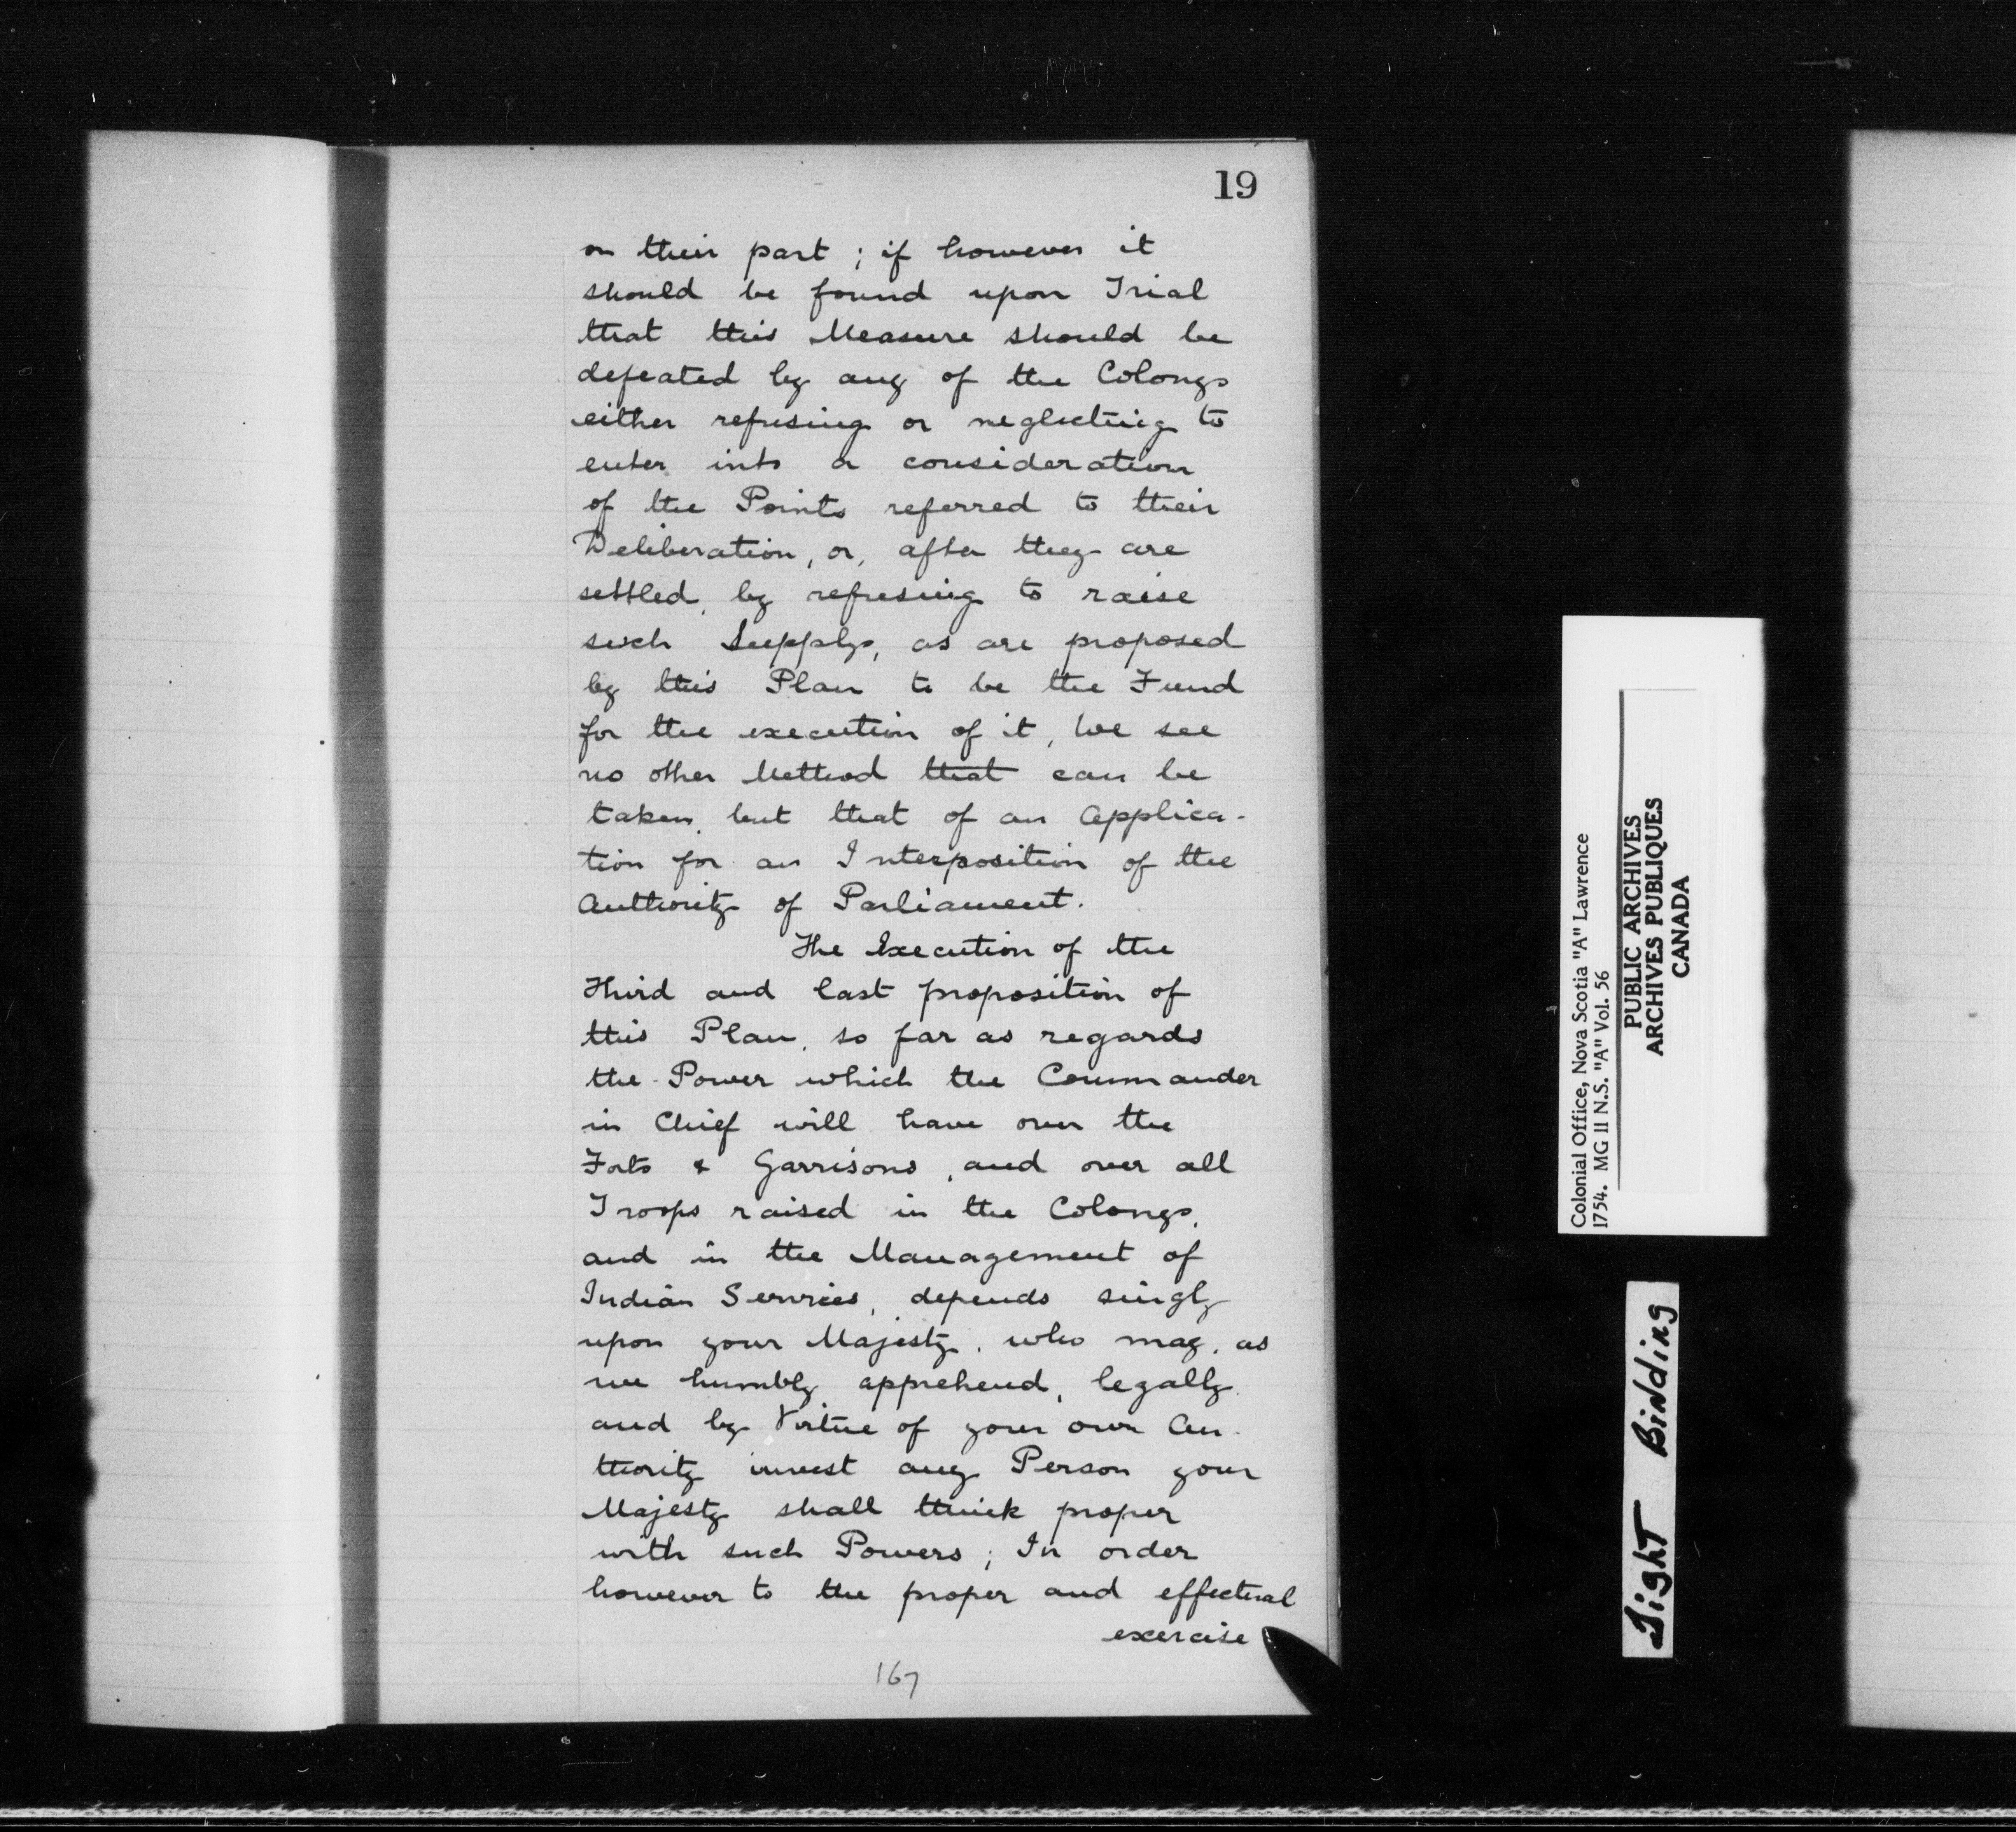 19
on their part ; if however it
should be found upon Trial
that this Measure should be
defeated by any of the Colonys
either refusing or neglecting to
enter into a consideration
of the Points referred to their
Deliberation, or, after they are
settled, by refusing to raise
such Supplys, as are proposed
by this Plan to be the Fund
for the execution of it, We see
no other Method that can be
taken, but that of an Applica-
tion for an Interposition of the
Authority of Parliament.
The Execution of the
Third and last proposition of
this Plan, so far as regards
the Power which the Commander
in Chief will have over the
Forts & Garrisons, and over all
Troops raised in the Colonys,
and in the Management of
Indian Services, depends singly
upon your Majesty, who may, as
we humbly apprehend, legally
and by Virtue of your own Au-
thority invest any Person your
Majesty shall think proper
with such Powers ; In order
however to the proper and effectual
exercise
167
Colonial Office, Nova Scotia "A" Lawrence
1754. MG 11 N.S. "A" Vol. 56
PUBLIC ARCHIVES
ARCHIVES PUBLIQUES
CANADA
Tight Binding